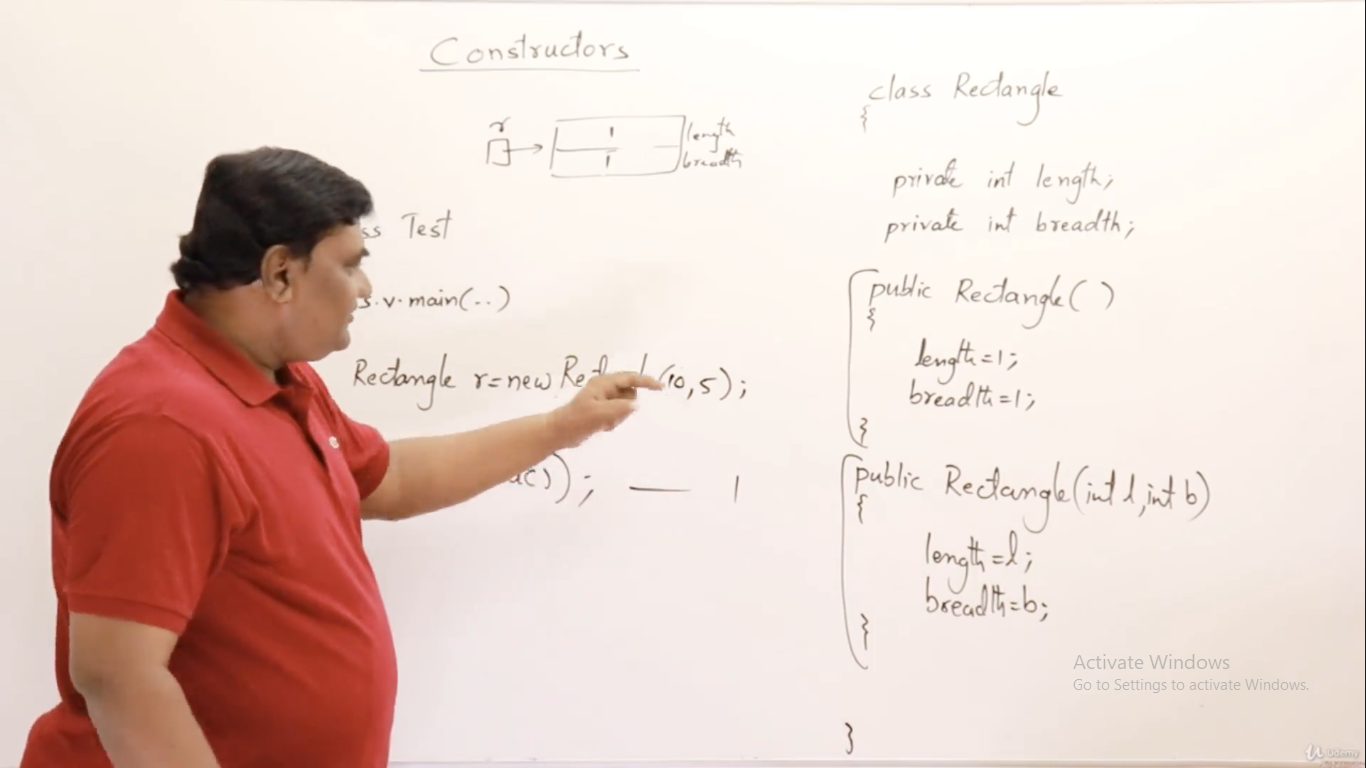 Constructors
r
length
breadth
Test
s.v.main(..)
Rectangle r=new (10,5);
); — 1
class Rectangle
{
private int length;
private int breadth;
public Rectangle( )
{
length=1;
breadth=1;
}
public Rectangle(int l,int b)
{
length=l;
breadth=b;
}
}
Activate Windows
Go to Settings to activate Windows.
Udemy